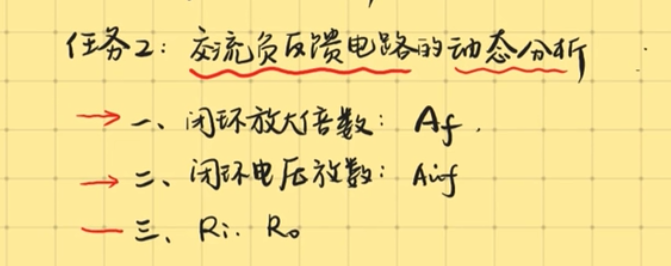 任务2：交流负反馈电路的动态分析
一、闭环放大倍数：Af.
二、闭环电压放数：Auf
三、Ri. Ro